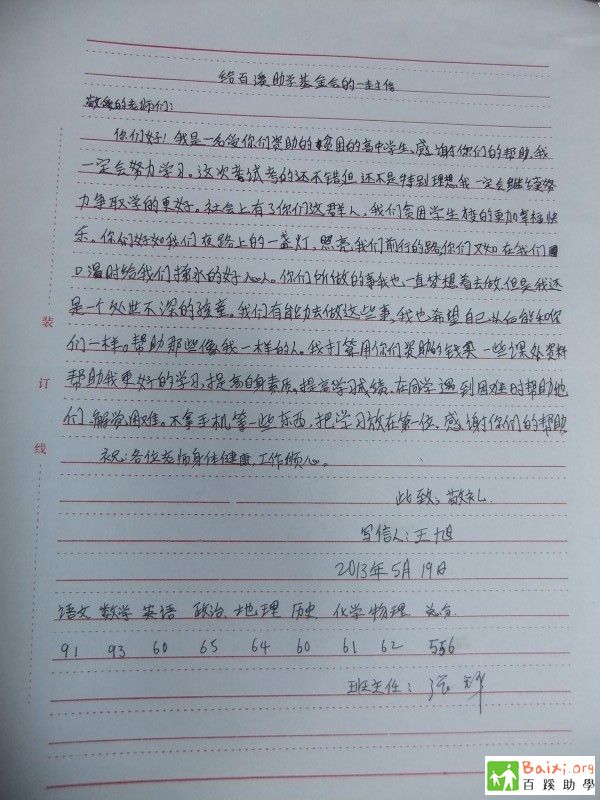 给百蹊助学基金会的一封信
敬爱的老师们：
你们好！我是一名受你们资助的贫困的高中学生，感谢你们的帮助，我
一定会努力学习。这次考试考的还不错但还不是特别理想我一定会继续努
力争取学的更好。社会上有了你们这群人，我们贫困学生接的更加幸福快
乐。你们好如我们夜路上的一盏灯，照亮我们前行的路你们又如在我们
口渴时给我们捧水的好人。你们所做的事我也一直梦想着去做，但是我还
是一个处世不深的孩童。我们有能力去做这些事，我也希望自己以后能和你
们一样。帮助那些像我一样的人。我打算用你们资助的钱买一些课外资料
帮助我更好的学习，提高自身素质。提高学习成绩，在同学遇到困难时帮助他
们解觉困难。不拿手机等一些东西，把学习放在第一位，感谢你们的帮助
祝：各位老师身体健康，工作顺心。
此致：敬礼
写信人：王旭
2013年5月19日
语文 数学 英语 政治 地理 历史 化学 物理 总分
91 93 60 65 64 60 61 62 556
班主任：
装
订
线
Baixi.org
百蹊助學